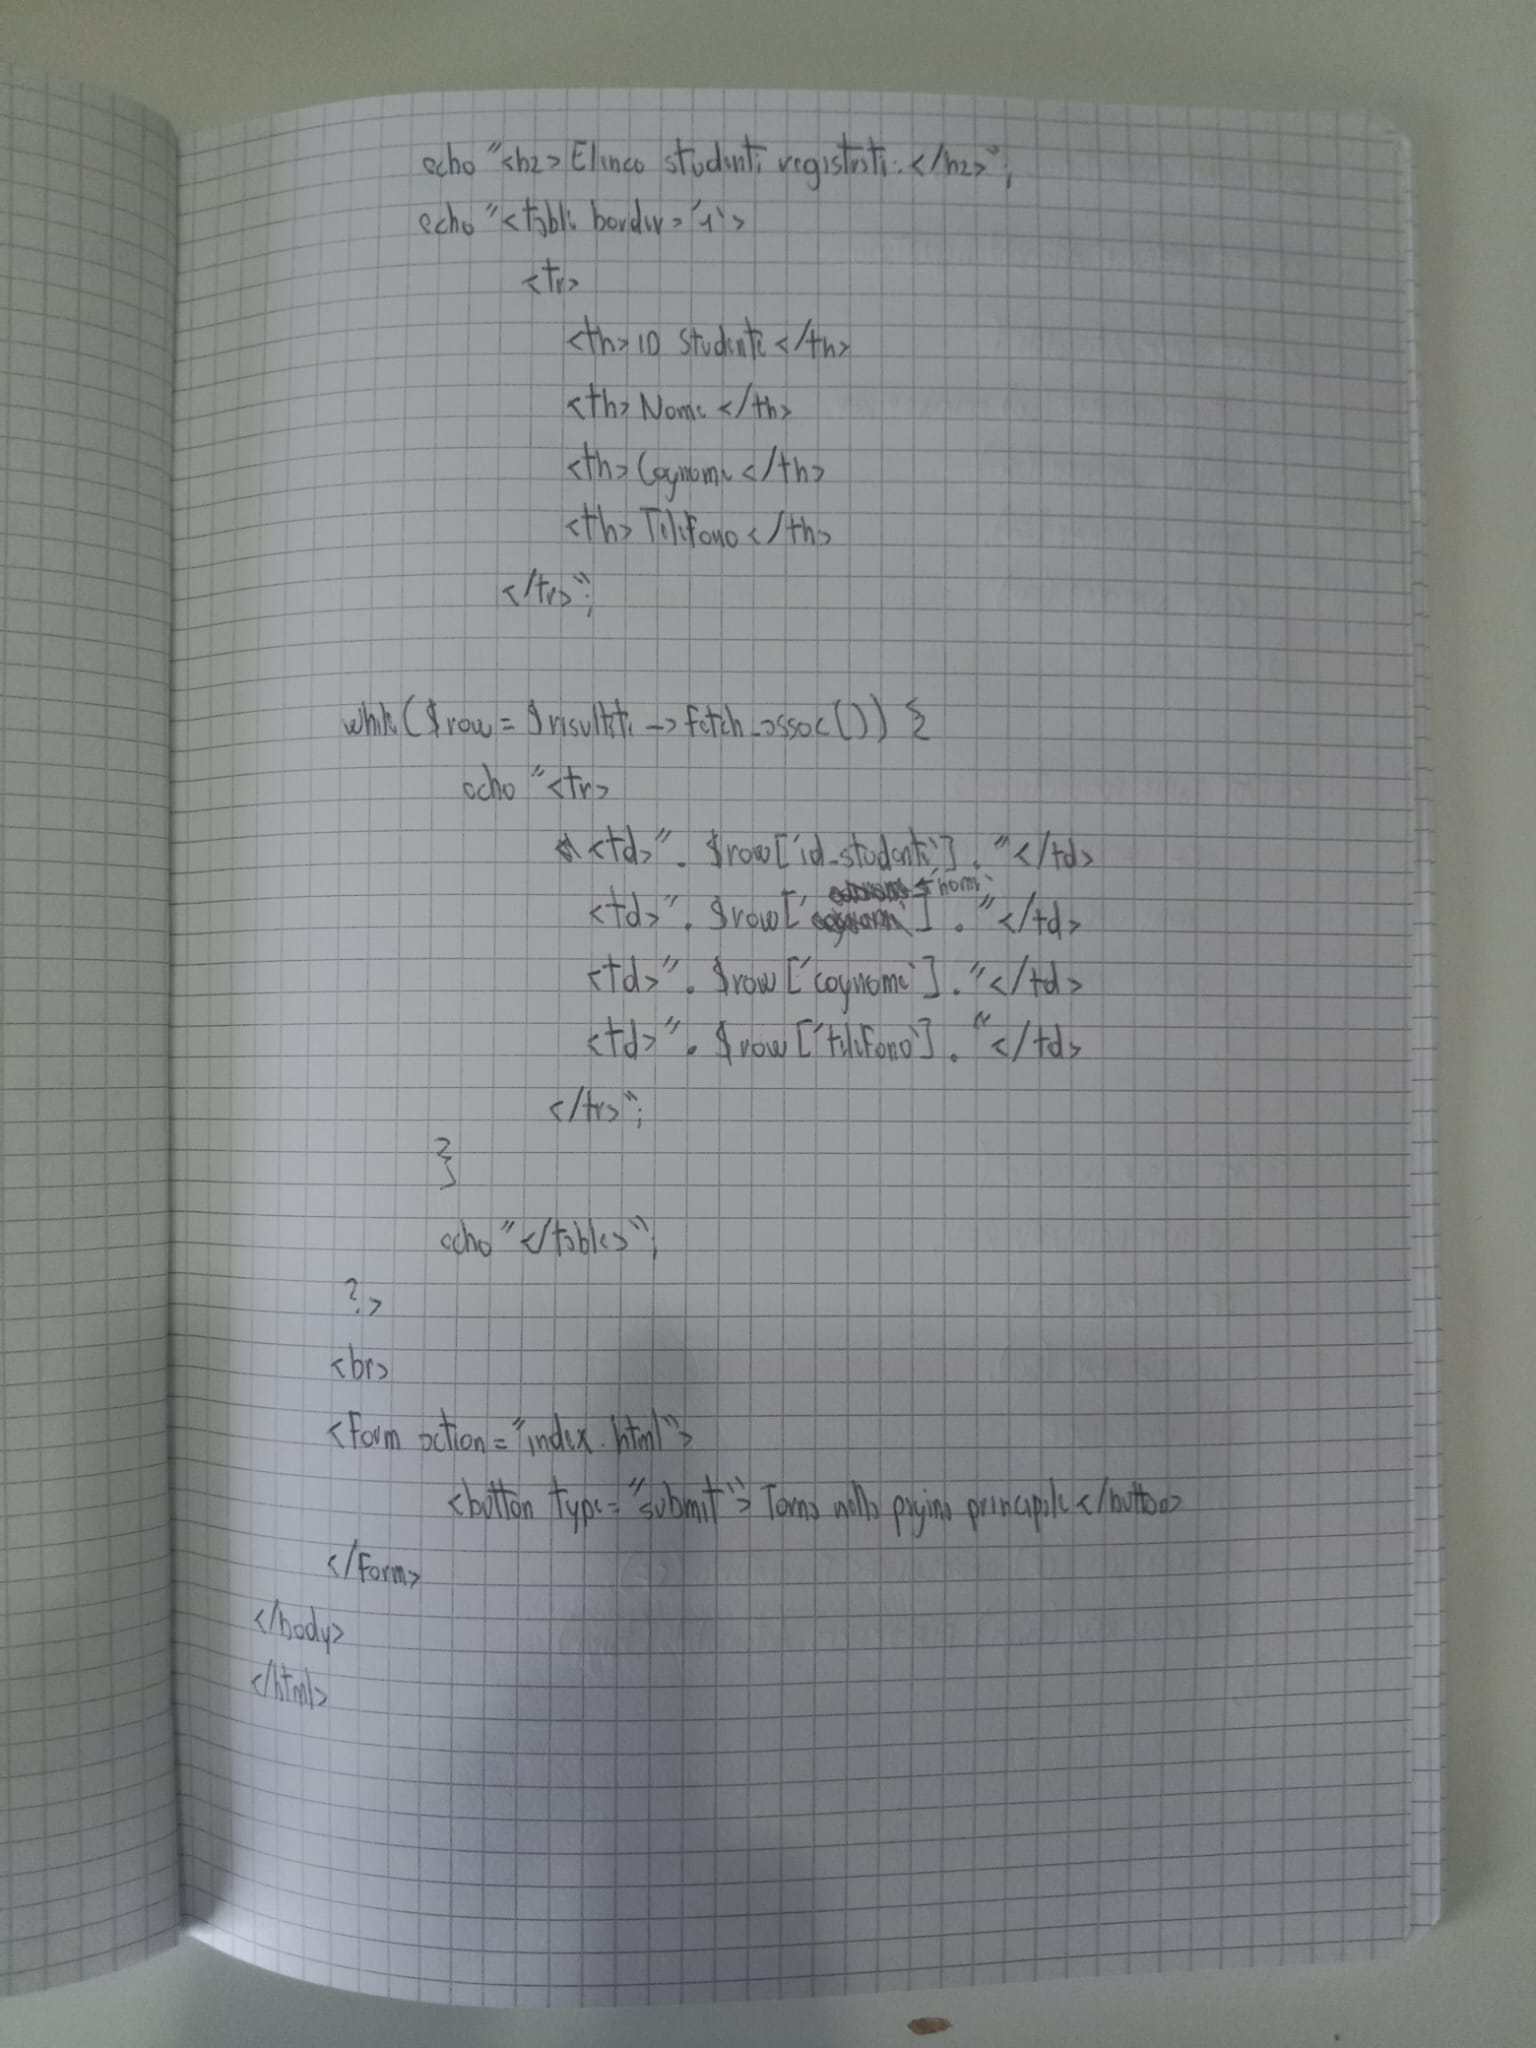 echo "<h2> Elenco studenti registrati: </h2>";
echo "<table border='1'>
<tr>
<th> ID Studente </th>
<th> Nome </th>
<th> Cognome </th>
<th> Telefono </th>
</tr>";
while($row = $risultati -> fetch_assoc()) {
echo "<tr>
<td>". $row['id_studente'] . "</td>
<td>". $row['nome'] . "</td>
<td>". $row['cognome'] . "</td>
<td>". $row['telefono'] . "</td>
</tr>";
}
echo "</table>";
?>
<br>
<form action="index.html">
<button type="submit"> Torna nella pagina principale </button>
</form>
</body>
</html>